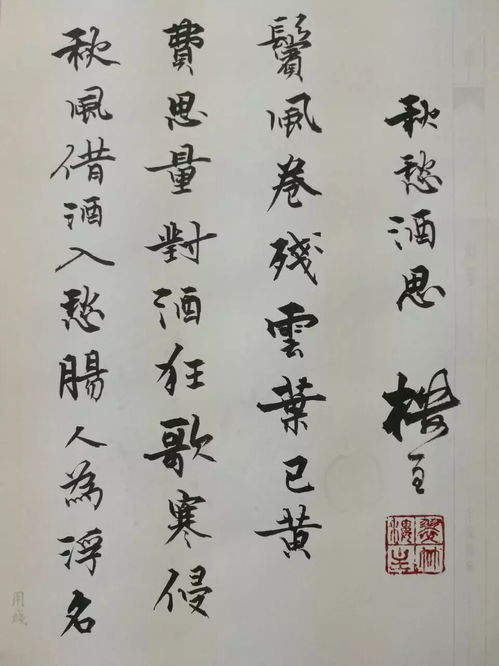 秋風借酒入愁腸人為浮名
費思量對酒狂歌寒侵
鬢風卷殘雲葉已黄
秋愁酒思
用箋